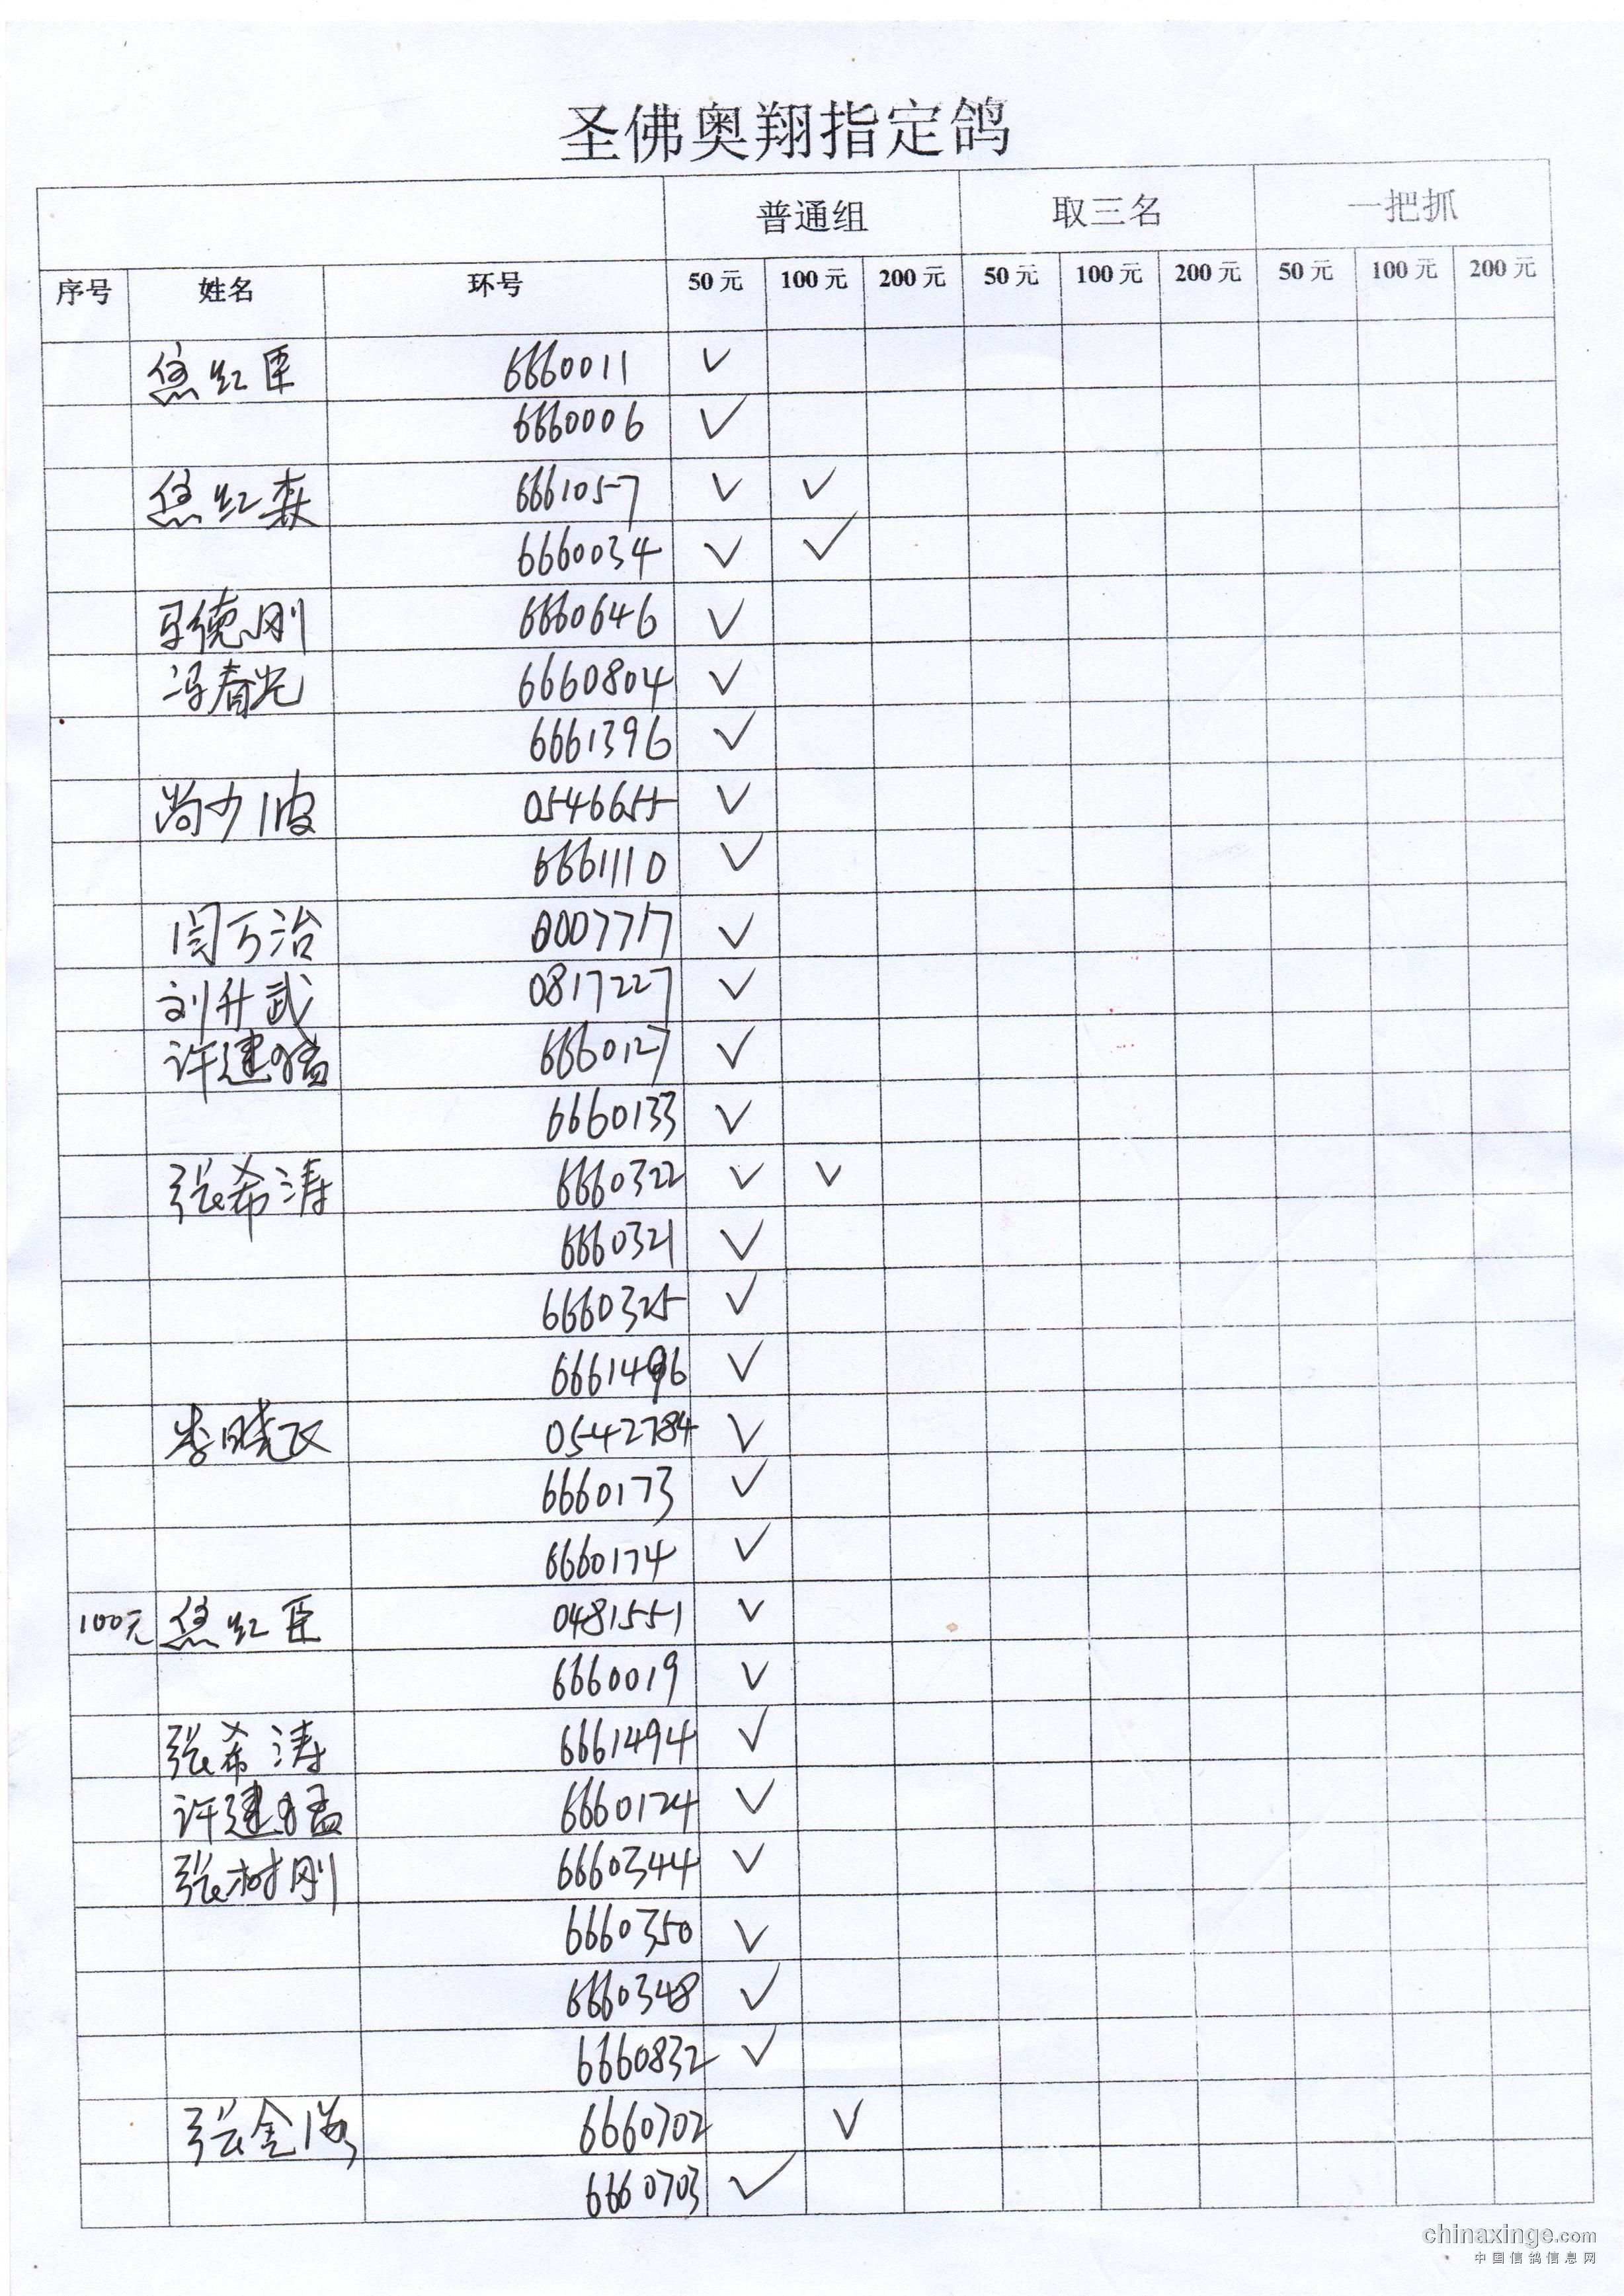 圣佛奥翔指定鸽
普通组 取三名 一把抓
序号 姓名 环号 50元 100元 200元 50元 100元 200元 50元 100元 200元
焦红臣 6660011 ✓
6660006 ✓
焦红森 6661057 ✓ ✓
6660034 ✓ ✓
马德刚 6660646 ✓
冯春光 6660804 ✓
6661396 ✓
尚少波 0546655 ✓
6661110 ✓
闫万治 0007717 ✓
刘升武 0817227 ✓
许建猛 6660127 ✓
6660133 ✓
张希涛 6660322 ✓ ✓
6660321 ✓
6660325 ✓
6661496 ✓
李晓飞 0542784 ✓
6660173 ✓
6660174 ✓
100元 焦红臣 0481551 ✓
6660019 ✓
张希涛 6661494 ✓
许建猛 6660124 ✓
张树刚 6660344 ✓
6660350 ✓
6660348 ✓
6660832 ✓
张金海 6660702 ✓
6660703 ✓
chinaxinge.com
中国信鸽信息网